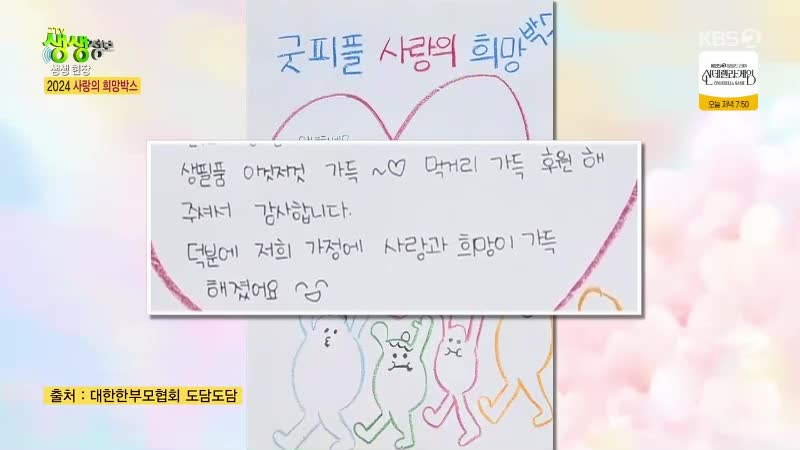 생생정보
생생 현장
2024 사랑의 희망박스
KBS2
KBS2 일일드라마
신데렐라 게임
CINDERELLA GAME
오늘 저녁 7:50
굿피플 사랑의 희망박스
생필품 이것저것 가득 ~♡ 먹거리 가득 후원 해
주셔서 감사합니다.
덕분에 저희 가정에 사랑과 희망이 가득
해졌어요
출처 : 대한한부모협회 도담도담